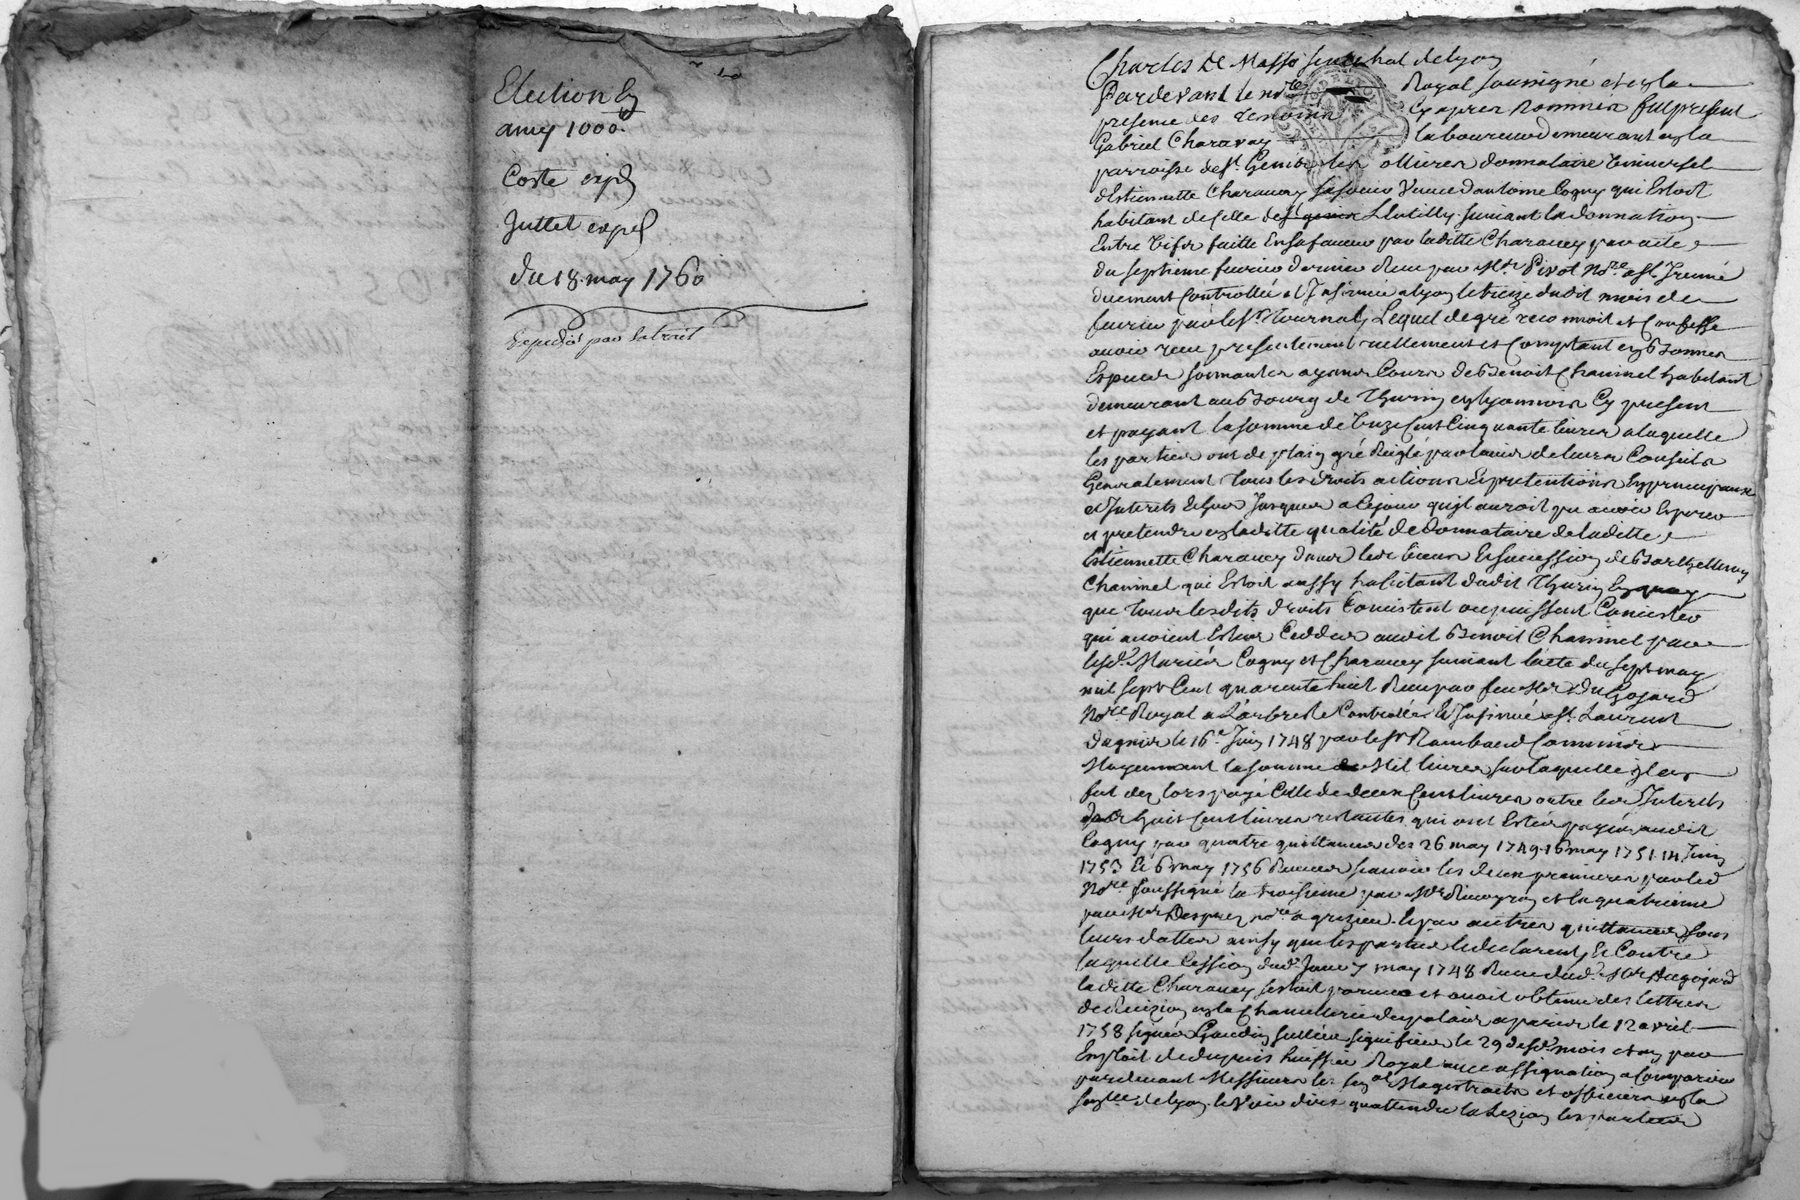 Election En
amy 1000.
Coste exp.
Jullet expel
du 18. may 1760
Expedié par extrait
Charles De Masso senechal de Lyon
Pardevant le nre Royal soussigné et en la
presence des temoins Cy apres nommés fut present
Gabriel Charavay laboureur demeurant en la
parroisse de St. Genis les ollieres donnataire universel
d'Estiennette Charavay sa soeur veuve d'antoine Cogny qui Estoit
habitant de Celle de Lentilly suivant la donnation
Entre vifs faitte En sa faveur par laditte Charavey par acte
du septieme fevrier dernier Receu par Mre Pivot Nore a St. Irenné
duement Controllé et Insinué a Lyon le treize dudit mois de
fevrier par le Sr Tournal, Lequel de gré reconnoit et Confesse
avoir receu presentement reellement et Comptant en Bonnes
Especes sonnantes ayant Cours de Benoit Charmel habitant
demeurant au Bourg de Thurin en lyonnois Cy present
et payant la somme de Onze Cent Cinquante livres a laquelle
les parties ont de plain gré Reiglé par l'avis de leurs Conseils
Generalement tous les droits actions Et pretentions En principaux
et Interets Echeus Jusques a Ce jour qu'il auroit pu avoir Esperer
et pretendre en laditte qualité de Donnataire de laditte
Estiennette Charavey dans les biens Et succession de Barthellemy
Charmel qui Estoit aussy habitant dudit Thurin En quoy
que tous lesdits droits Consistent ou puissent Consister
qui avoient Estés Ceddés audit Benoit Charmel par
lesd. Mariés Cogny et Charavey suivant l'acte du sept may
mil sept Cent quarente huit Receu par feu Mre Dugojard
Nore Royal a Larbresle Controllé Et Insinué a St. Laurent
dagnier le 16e Juin 1748 par le Sr Rambaud Commis
Moyennant la somme de Mil livres sur laquelle il en
fut des lors payé Celle de deux Cent livres outre les Interets
des huit Cent livres restantes qui ont Estés payés audit
Cogny par quatre quittances des 26 may 1749. 16 may 1751. 14 Juin
1753 Et 6 may 1756 Receues scavoir les deux premieres par led
Nore soussigné la troisieme par Mre et la quatrieme
par Mre Desprez nore a grizieu. Et par autres quittances sous
leurs dattes ainsy que les parties le declarent, Et Contre
laquelle Cession dud. Jour 7 may 1748 Receue dud. Mre Dugojard
laditte Charavey s'estoit pourveue et avoit obtenu des lettres
de Recizion en la Chancellerie du palais a paris le 12 avril
1758 signée Gaudin sellées signifiées le 29 desd. mois et an par
Exploit de Dupuis huissier Royal avec assignation a Comparoir
pardevant Messieurs les gens Magistrats et officiers en la
senlle de Lyon. le Voir dire qu'attendu la lezion les parties